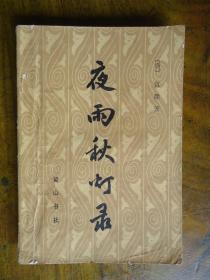 夜雨秋灯录
［清］宣鼎 著
黄山书社